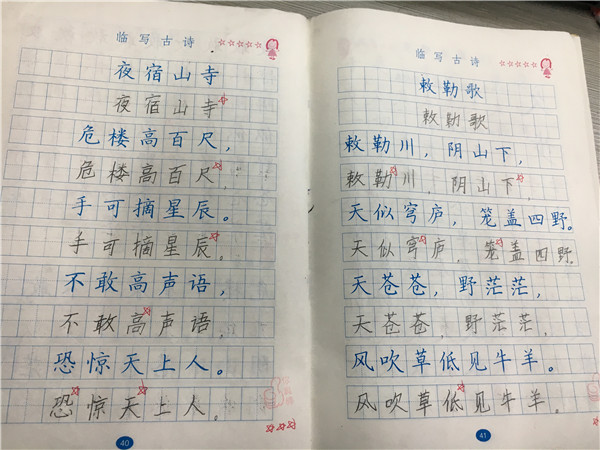 临写古诗
夜宿山寺
夜宿山寺
危楼高百尺，
危楼高百尺，
手可摘星辰。
手可摘星辰，
不敢高声语，
不敢高声语，
恐惊天上人。
恐惊天上人。
40
临写古诗
敕勒歌
敕勒歌
敕勒川，阴山下，
敕勒川，阴山下，
天似穹庐，笼盖四野。
天似穹庐，笼盖四野。
天苍苍，野茫茫，
天苍苍，野茫茫，
风吹草低见牛羊。
风吹草低见牛羊。
41